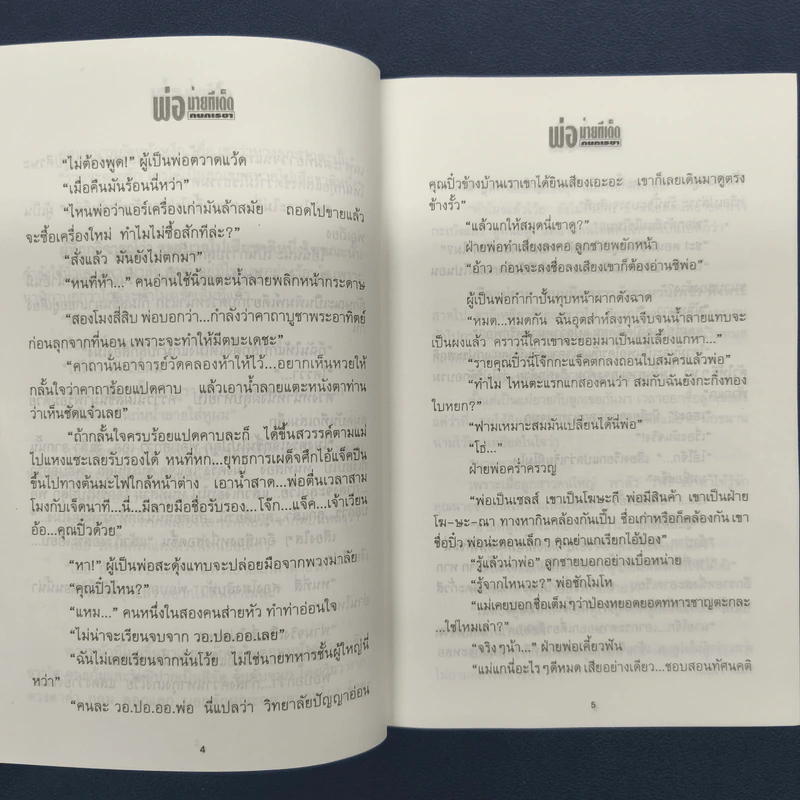 พ่อม่ายทีเด็ด
กนกเรขา
“ไม่ต้องพูด!” ผู้เป็นพ่อตวาดแว้ด
“เมื่อคืนมันร้อนนี่หว่า”
“ไหนพ่อว่าแอร์เครื่องเก่ามันล้าสมัย ถอดไปขายแล้ว
จะซื้อเครื่องใหม่ ทำไมไม่ซื้อสักทีล่ะ?”
“สั่งแล้ว มันยังไม่ตกมา”
“หนที่ห้า...” คนอ่านใช้นิ้วแตะน้ำลายพลิกหน้ากระดาษ
“สองโมงสี่สิบ พ่อบอกว่า...กำลังว่าคาถาบูชาพระอาทิตย์
ก่อนลุกจากที่นอน เพราะจะทำให้มีตบะเดชะ”
“คาถานั่นอาจารย์วัดคลองห้าให้ไว้...อยากเห็นหวยให้
กลั้นใจว่าคาถาร้อยแปดคาบ แล้วเอาน้ำลายแตะหนังตาท่าน
ว่าเห็นชัดแจ๋วเลย”
“ถ้ากลั้นใจครบร้อยแปดคาบละก็ ได้ขึ้นสวรรค์ตามแม่
ไปแหงแซะเลยรับรองได้ หนที่หก...ยุทธการเผด็จศึกไอ้แจ็คปีน
ขึ้นไปทางต้นมะไฟใกล้หน้าต่าง เอาน้ำสาด...พ่อตื่นเวลาสาม
โมงกับเจ็ดนาที...นี่...มีลายมือชื่อรับรอง...โจ๊ก...แจ็ค...เจ้าเวียน
อ้อ...คุณปิ๋วด้วย”
“หา!” ผู้เป็นพ่อสะดุ้งแทบจะปล่อยมือจากพวงมาลัย
“คุณปิ๋วไหน?”
“แหม...” คนหนึ่งในสองคนส่ายหัว ทำท่าอ่อนใจ
“ไม่น่าจะเรียนจบจาก วอ.ปอ.ออ.เลย”
“ฉันไม่เคยเรียนจากนั่นโว้ย ไม่ใช่นายทหารชั้นผู้ใหญ่นี่
หว่า”
“คนละ วอ.ปอ.ออ.พ่อ นี่แปลว่า วิทยาลัยปัญญาอ่อน
4
พ่อม่ายทีเด็ด
กนกเรขา
คุณปิ๋วข้างบ้านเราเขาได้ยินเสียงเอะอะ เขาก็เลยเดินมาดูตรง
ข้างรั้ว”
“แล้วแกให้สมุดนี่เขาดู?”
ฝ่ายพ่อทำเสียงลงคอ ลูกชายพยักหน้า
“อ้าว ก่อนจะลงชื่อลงเสียงเขาก็ต้องอ่านซิพ่อ”
ผู้เป็นพ่อกำกำปั้นทุบหน้าผากดังฉาด
“หมด...หมดกัน ฉันอุตส่าห์ลงทุนจีบจนน้ำลายแทบจะ
เป็นผงแล้ว คราวนี้ใครเขาจะยอมมาเป็นแม่เลี้ยงแกหา...”
“รายคุณปิ๋วนี่โจ๊กกะแจ็คตกลงถอนใบสมัครแล้วพ่อ”
“ทำไม ไหนตะแรกแกสองคนว่า สมกับฉันยังกะกิ่งทอง
ใบหยก?”
“ฟามเหมาะสมมันเปลี่ยนได้นี่พ่อ”
“โธ่...”
ฝ่ายพ่อคร่ำครวญ
“พ่อเป็นเซลส์ เขาเป็นโฆษะกี พ่อมีสินค้า เขาเป็นฝ่าย
โฆ-ษะ-ณา ทางหากินคล้องกันเป๊ะ ชื่อเก่าหรือก็คล้องกัน เขา
ชื่อปิ๋ว พ่อน่ะตอนเล็กๆ คุณย่าแกเรียกไอ้ป๋อง”
“รู้แล้วน่าพ่อ” ลูกชายบอกอย่างเบื่อหน่าย
“รู้จากไหนวะ?” พ่อชักโมโห
“แม่เคยบอกชื่อเต็มๆว่าป๋องหยอดยอดทหารชาญตะกละ
...ใช่ไหมเล่า?”
“จริงๆน้า...” ฝ่ายพ่อเคี้ยวฟัน
“แม่แกนี่อะไรๆดีหมด เสียอย่างเดียว...ชอบสอนทัศนคติ
5